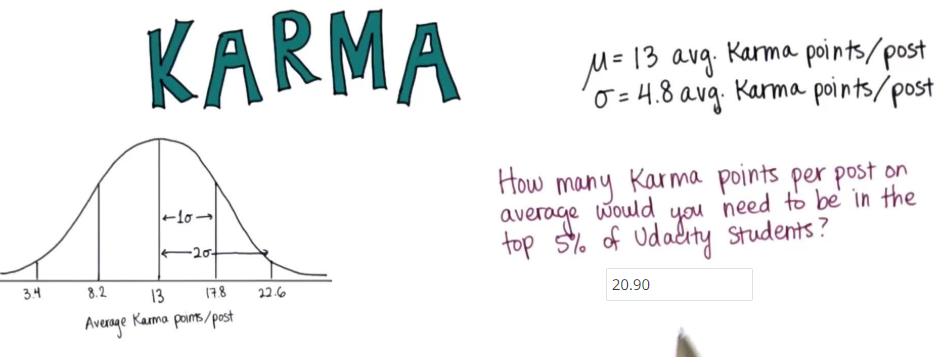 KARMA
μ = 13 avg. Karma points/post
σ = 4.8 avg. Karma points/post
←1σ→
←2σ→
3.4 8.2 13 17.8 22.6
Average Karma points/post
How many Karma points per post on
average would you need to be in the
top 5% of Udacity students?
20.90